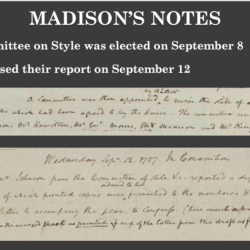 MADISON'S NOTES
mittee on Style was elected on September 8
sed their report on September 12
by ballot
A Committee was then appointed to revise the stile of
which had been agreed to by the House. The committee
Mr Hamilton, Mr Govr Morris, Mr Madison and Mr
Wednesday Sepr 12. 1787. In Convention
Johnson from the Committee of stile &c. reported a
of which printed copies were furnished to the members
letter to accompany the plan, to Congress.
as printed of the letter from this draft as